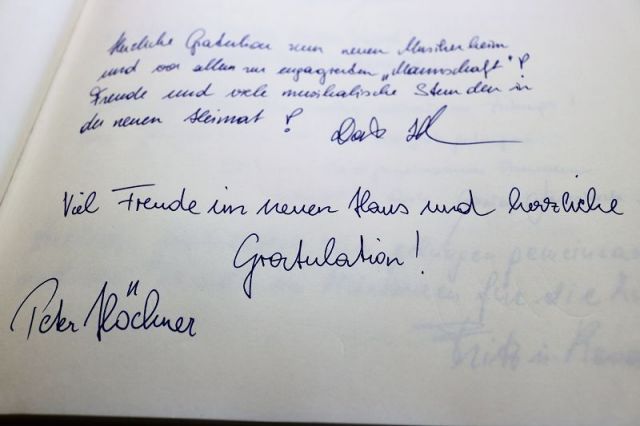 Herzliche Gratulation zum neuen Musikerheim
und vor allem zur engagierten „Mannschaft"!
Freude und viele musikalische Stunden in
der neuen Heimat!
Viel Freude im neuen Haus und herzliche
Gratulation!
Peter Höckner
gemeinsam
für die